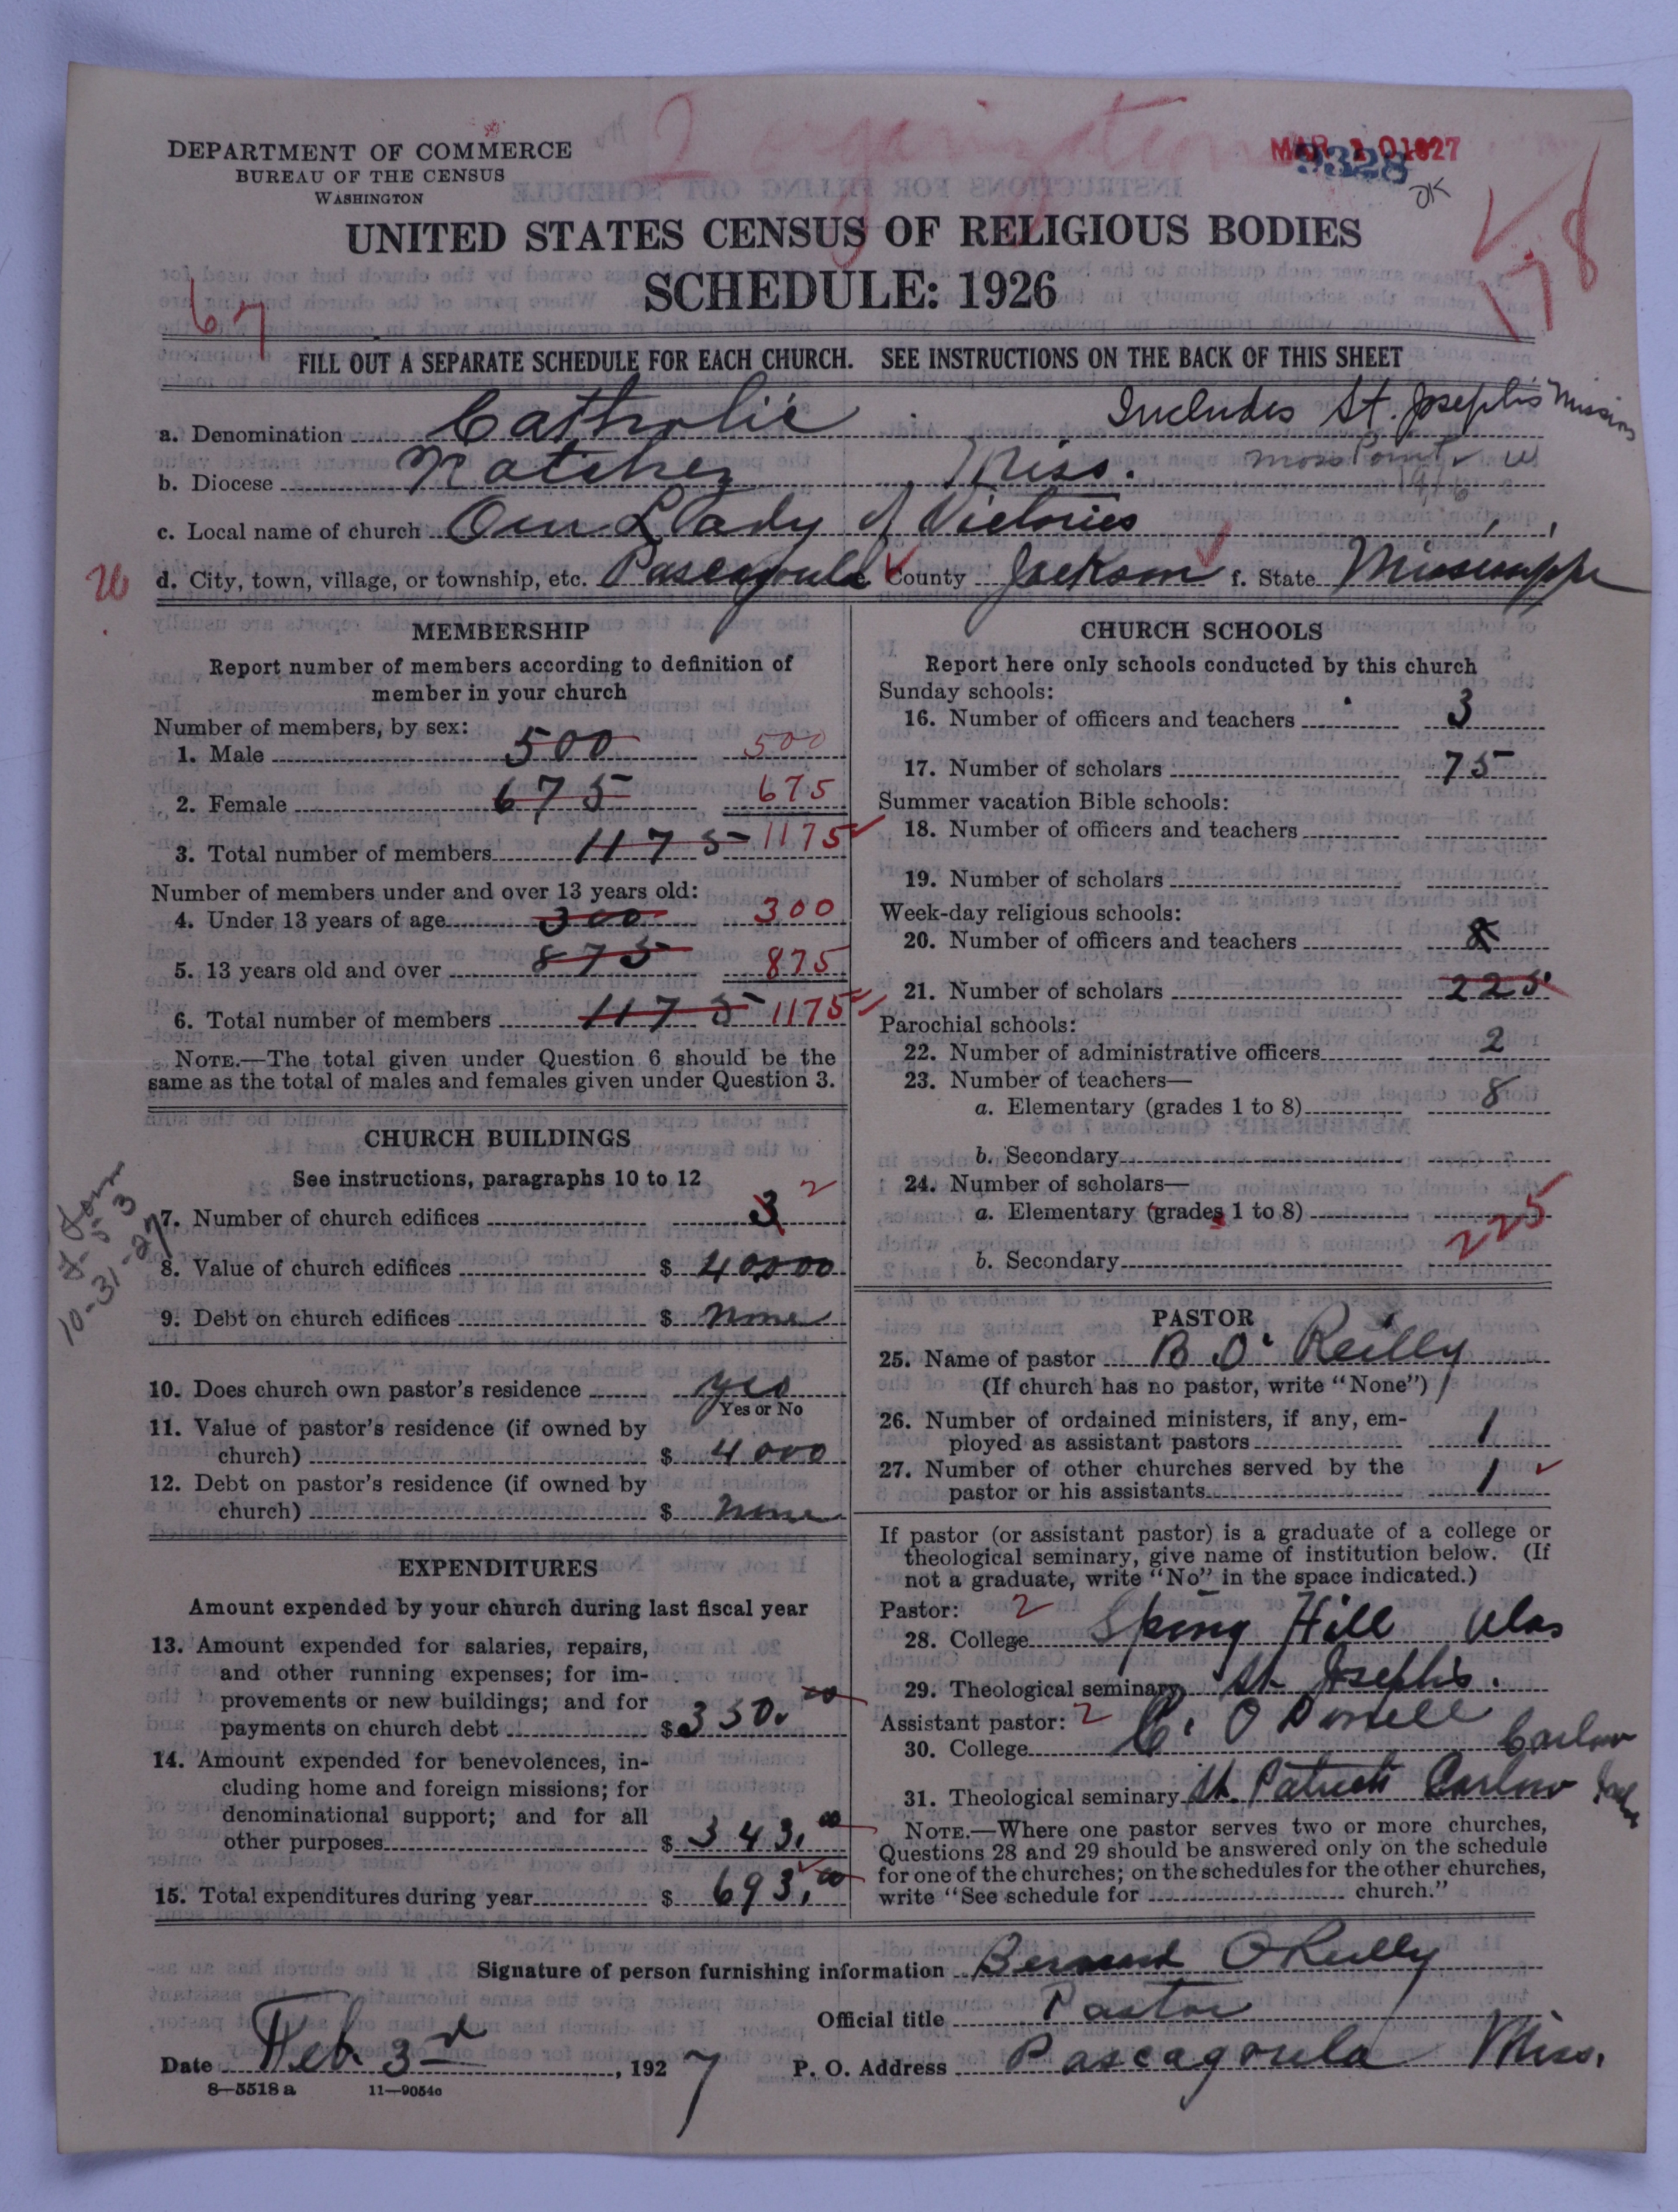 2 organizations
DEPARTMENT OF COMMERCE
BUREAU OF THE CENSUS
WASHINGTON
MAR 10 1927
9328
OK
UNITED STATES CENSUS OF RELIGIOUS BODIES
SCHEDULE: 1926
67
178
FILL OUT A SEPARATE SCHEDULE FOR EACH CHURCH. SEE INSTRUCTIONS ON THE BACK OF THIS SHEET
Includes St. Joseph's Mission
a. Denomination Catholic
Moss Point
b. Diocese Natchez Miss.
1916
c. Local name of church Our Lady of Victories
26
d. City, town, village, or township, etc. Pascagoula e. County Jackson f. State Mississippi
MEMBERSHIP
Report number of members according to definition of
member in your church
Number of members, by sex:
1. Male 500 500
2. Female 675 675
3. Total number of members 1175 1175
Number of members under and over 13 years old:
4. Under 13 years of age 300 300
5. 13 years old and over 875 875
6. Total number of members 1175 1175
NOTE.—The total given under Question 6 should be the
same as the total of males and females given under Question 3.
CHURCH BUILDINGS
See instructions, paragraphs 10 to 12
7. Number of church edifices 3 2
8. Value of church edifices $ 40000
9. Debt on church edifices $ none
10-31-27
10. Does church own pastor's residence yes
Yes or No
11. Value of pastor's residence (if owned by
church) $ 4000
12. Debt on pastor's residence (if owned by
church) $ none
EXPENDITURES
Amount expended by your church during last fiscal year
13. Amount expended for salaries, repairs,
and other running expenses; for im-
provements or new buildings; and for
payments on church debt $ 350.00
14. Amount expended for benevolences, in-
cluding home and foreign missions; for
denominational support; and for all
other purposes $ 343.00
15. Total expenditures during year $ 693.00
CHURCH SCHOOLS
Report here only schools conducted by this church
Sunday schools:
16. Number of officers and teachers 3
17. Number of scholars 75
Summer vacation Bible schools:
18. Number of officers and teachers
19. Number of scholars
Week-day religious schools:
20. Number of officers and teachers 8
21. Number of scholars 225
Parochial schools:
22. Number of administrative officers 2
23. Number of teachers—
a. Elementary (grades 1 to 8) 8
b. Secondary
24. Number of scholars—
a. Elementary (grades 1 to 8) 225
b. Secondary
PASTOR
25. Name of pastor B O'Reilly
(If church has no pastor, write "None")
26. Number of ordained ministers, if any, em-
ployed as assistant pastors 1
27. Number of other churches served by the
pastor or his assistants 1
If pastor (or assistant pastor) is a graduate of a college or
theological seminary, give name of institution below. (If
not a graduate, write "No" in the space indicated.)
Pastor: 2
28. College Spring Hill Ala
29. Theological seminary St Josephs.
Assistant pastor: 2
30. College C. O Donell Carlow
31. Theological seminary St. Patricks Carlow
NOTE.—Where one pastor serves two or more churches,
Questions 28 and 29 should be answered only on the schedule
for one of the churches; on the schedules for the other churches,
write "See schedule for church."
Signature of person furnishing information Bernard O'Reilly
Official title Pastor
Date Feb. 3rd, 1927 P. O. Address Pascagoula Miss.
8—5518 a 11—9054c